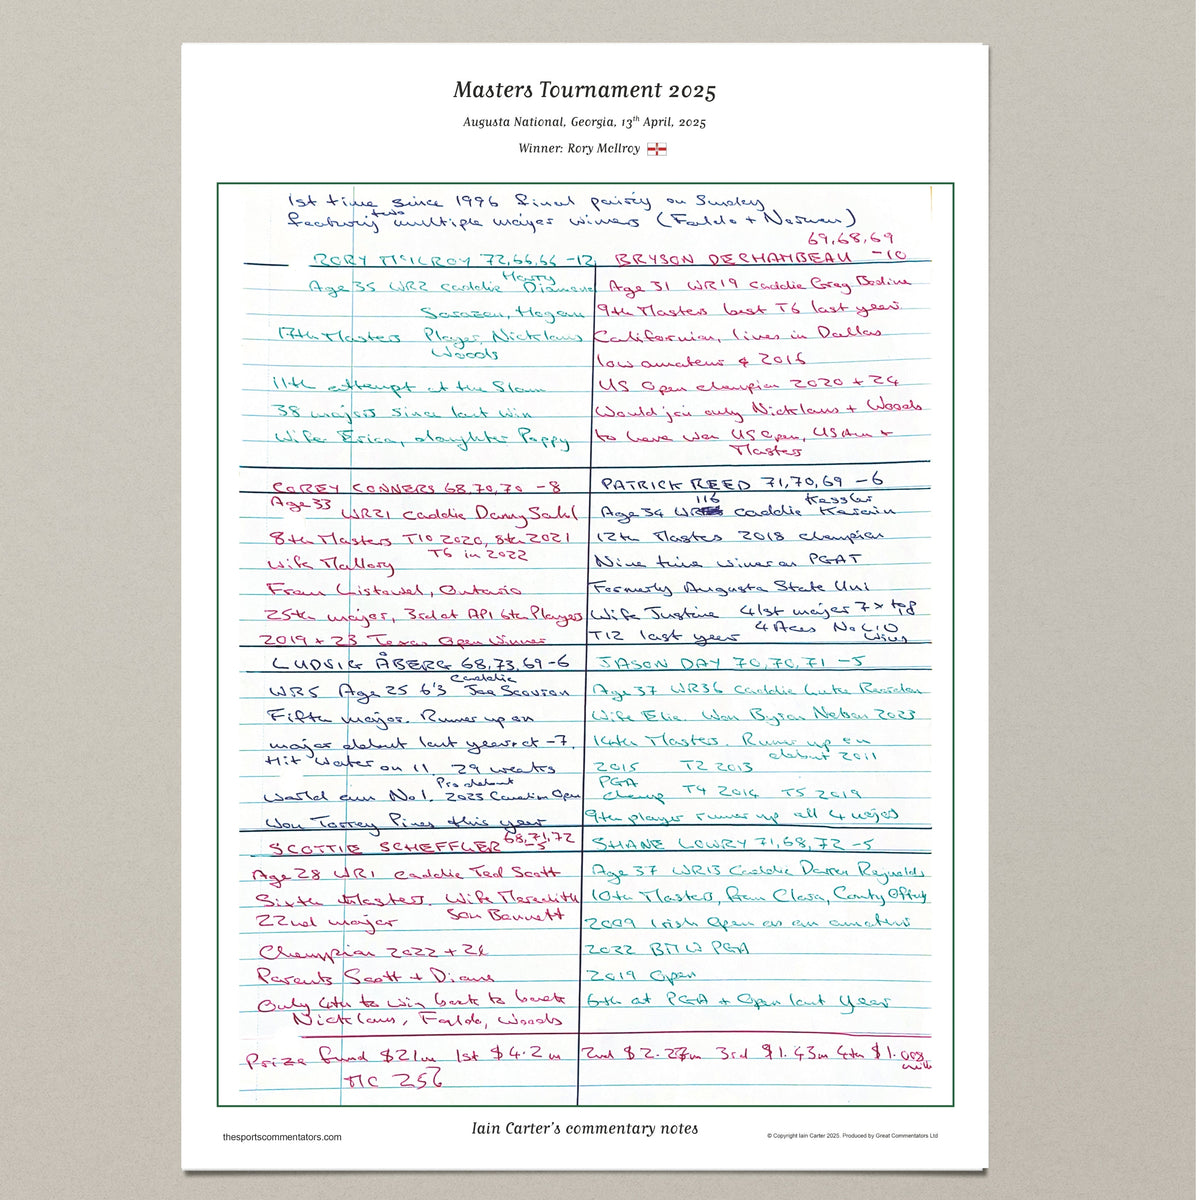 Masters Tournament 2025
Augusta National, Georgia, 13th April, 2025
Winner: Rory McIlroy
1st time since 1996 final pairing on Sunday
featuring two multiple major winners (Faldo + Norman)
RORY McILROY 72,66,66 -12
Age 35 WR2 caddie Harry Diamond
Sarazen, Hogan
17th Masters Player, Nicklaus
Woods
11th attempt at the Slam
38 majors since last win
Wife Erica, daughter Poppy
69,68,69
BRYSON DECHAMBEAU -10
Age 31 WR19 caddie Greg Bodine
9th Masters best T6 last year
Californian, lives in Dallas
low amateur 2016
US Open champion 2020 + 24
Would join only Nicklaus + Woods
to have won US Open, US Am +
Masters
COREY CONNERS 68,70,70 -8
Age 33 WR21 caddie Danny Sahl
8th Masters T10 2020, 8th 2021
T6 in 2022
Wife Mallory
From Listowel, Ontario
25th major, 3rd at API 6th Players
2019 + 23 Texas Open Winner
PATRICK REED 71,70,69 -6
Age 34 WR 116 caddie Kessler Karain
12th Masters 2018 champion
Nine time winner on PGAT
Formerly Augusta State Uni
Wife Justine 41st major 7 x top 8
T12 last year 4 Aces No LIV
Wins
LUDVIG ÅBERG 68,73,69 -6
WR5 Age 25 6'3 caddie Joe Scovron
Fifth major. Runner up on
major debut last year at -7.
Hit Water on 11. 29 weeks
World am No 1. Pro debut 2023 Canadian Open
Won Torrey Pines this year
JASON DAY 70,70,71 -5
Age 37 WR36 caddie Luke Reardon
Wife Ellie. Won Byron Nelson 2023
14th Masters. Runner up on
debut 2011
2015 T2 2013
PGA
champ T4 2016 T5 2019
9th player runner up all 4 majors
SCOTTIE SCHEFFLER 68,71,72 -5
Age 28 WR1 caddie Ted Scott
Sixth Masters. Wife Meredith
22nd major Son Bennett
Champion 2022 + 24
Parents Scott + Diane
Only 4th to win back to back
Nicklaus, Faldo, Woods
SHANE LOWRY 71,68,72 -5
Age 37 WR13 Caddie Darren Reynolds
10th Masters, from Clara, County Offaly
2009 Irish Open as an amateur
2022 BMW PGA
2019 Open
6th at PGA + Open last Year
Prize fund $21m 1st $4.2m 2nd $2.27m 3rd $1.43m 4th $1.008
mill
MC 25k
Iain Carter's commentary notes
thesportscommentators.com
© Copyright Iain Carter 2025. Produced by Great Commentators Ltd